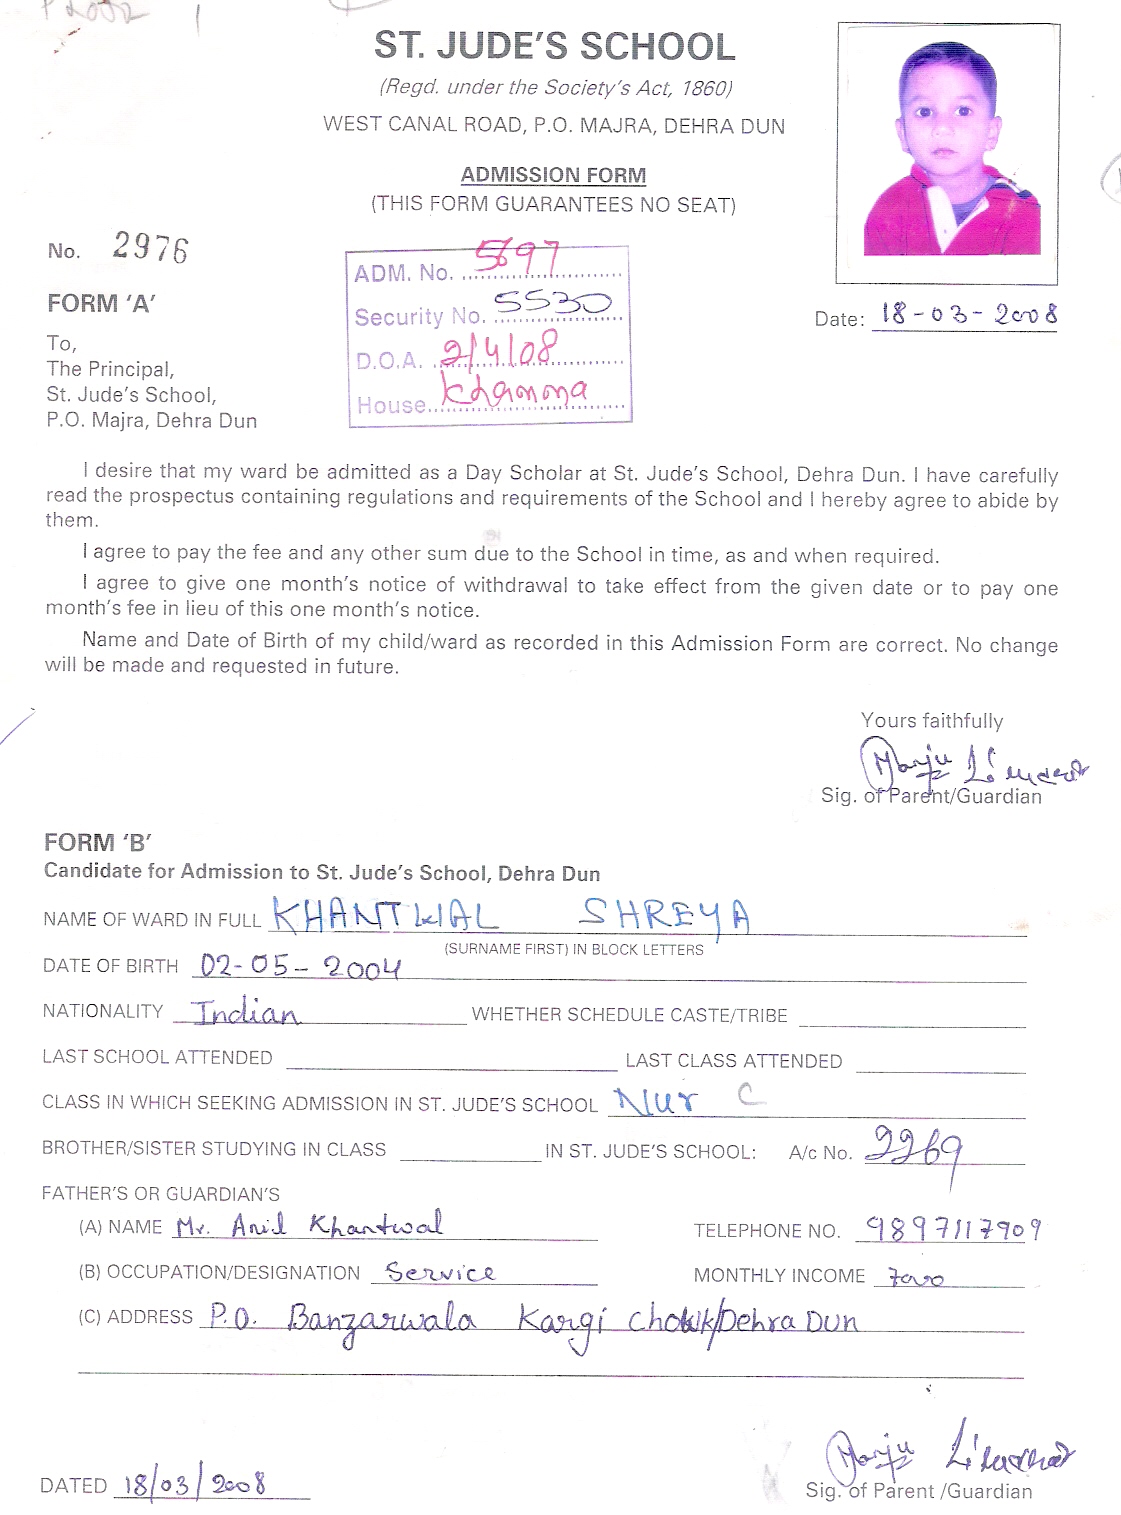 ST. JUDE'S SCHOOL
(Regd. under the Society's Act, 1860)
WEST CANAL ROAD, P.O. MAJRA, DEHRA DUN
ADMISSION FORM
(THIS FORM GUARANTEES NO SEAT)
No. 2976
ADM. No. 5697
Security No. 5530
D.O.A. 2/4/08
House
FORM 'A'
Date: 18-03-2008
To,
The Principal,
St. Jude's School,
P.O. Majra, Dehra Dun
I desire that my ward be admitted as a Day Scholar at St. Jude's School, Dehra Dun. I have carefully
read the prospectus containing regulations and requirements of the School and I hereby agree to abide by
them.
I agree to pay the fee and any other sum due to the School in time, as and when required.
I agree to give one month's notice of withdrawal to take effect from the given date or to pay one
month's fee in lieu of this one month's notice.
Name and Date of Birth of my child/ward as recorded in this Admission Form are correct. No change
will be made and requested in future.
Yours faithfully
Manju
Sig. of Parent/Guardian
FORM 'B'
Candidate for Admission to St. Jude's School, Dehra Dun
NAME OF WARD IN FULL KHANTWAL SHREYA
(SURNAME FIRST) IN BLOCK LETTERS
DATE OF BIRTH 02-05-2004
NATIONALITY Indian WHETHER SCHEDULE CASTE/TRIBE
LAST SCHOOL ATTENDED LAST CLASS ATTENDED
CLASS IN WHICH SEEKING ADMISSION IN ST. JUDE'S SCHOOL Nur C
BROTHER/SISTER STUDYING IN CLASS IN ST. JUDE'S SCHOOL: A/c No. 2269
FATHER'S OR GUARDIAN'S
(A) NAME Mr. Anil Khantwal TELEPHONE NO. 9897117909
(B) OCCUPATION/DESIGNATION Service MONTHLY INCOME 7000
(C) ADDRESS P.O. Banzarwala Kargi Chowk/Dehra Dun
Manju
DATED 18/03/2008
Sig. of Parent /Guardian